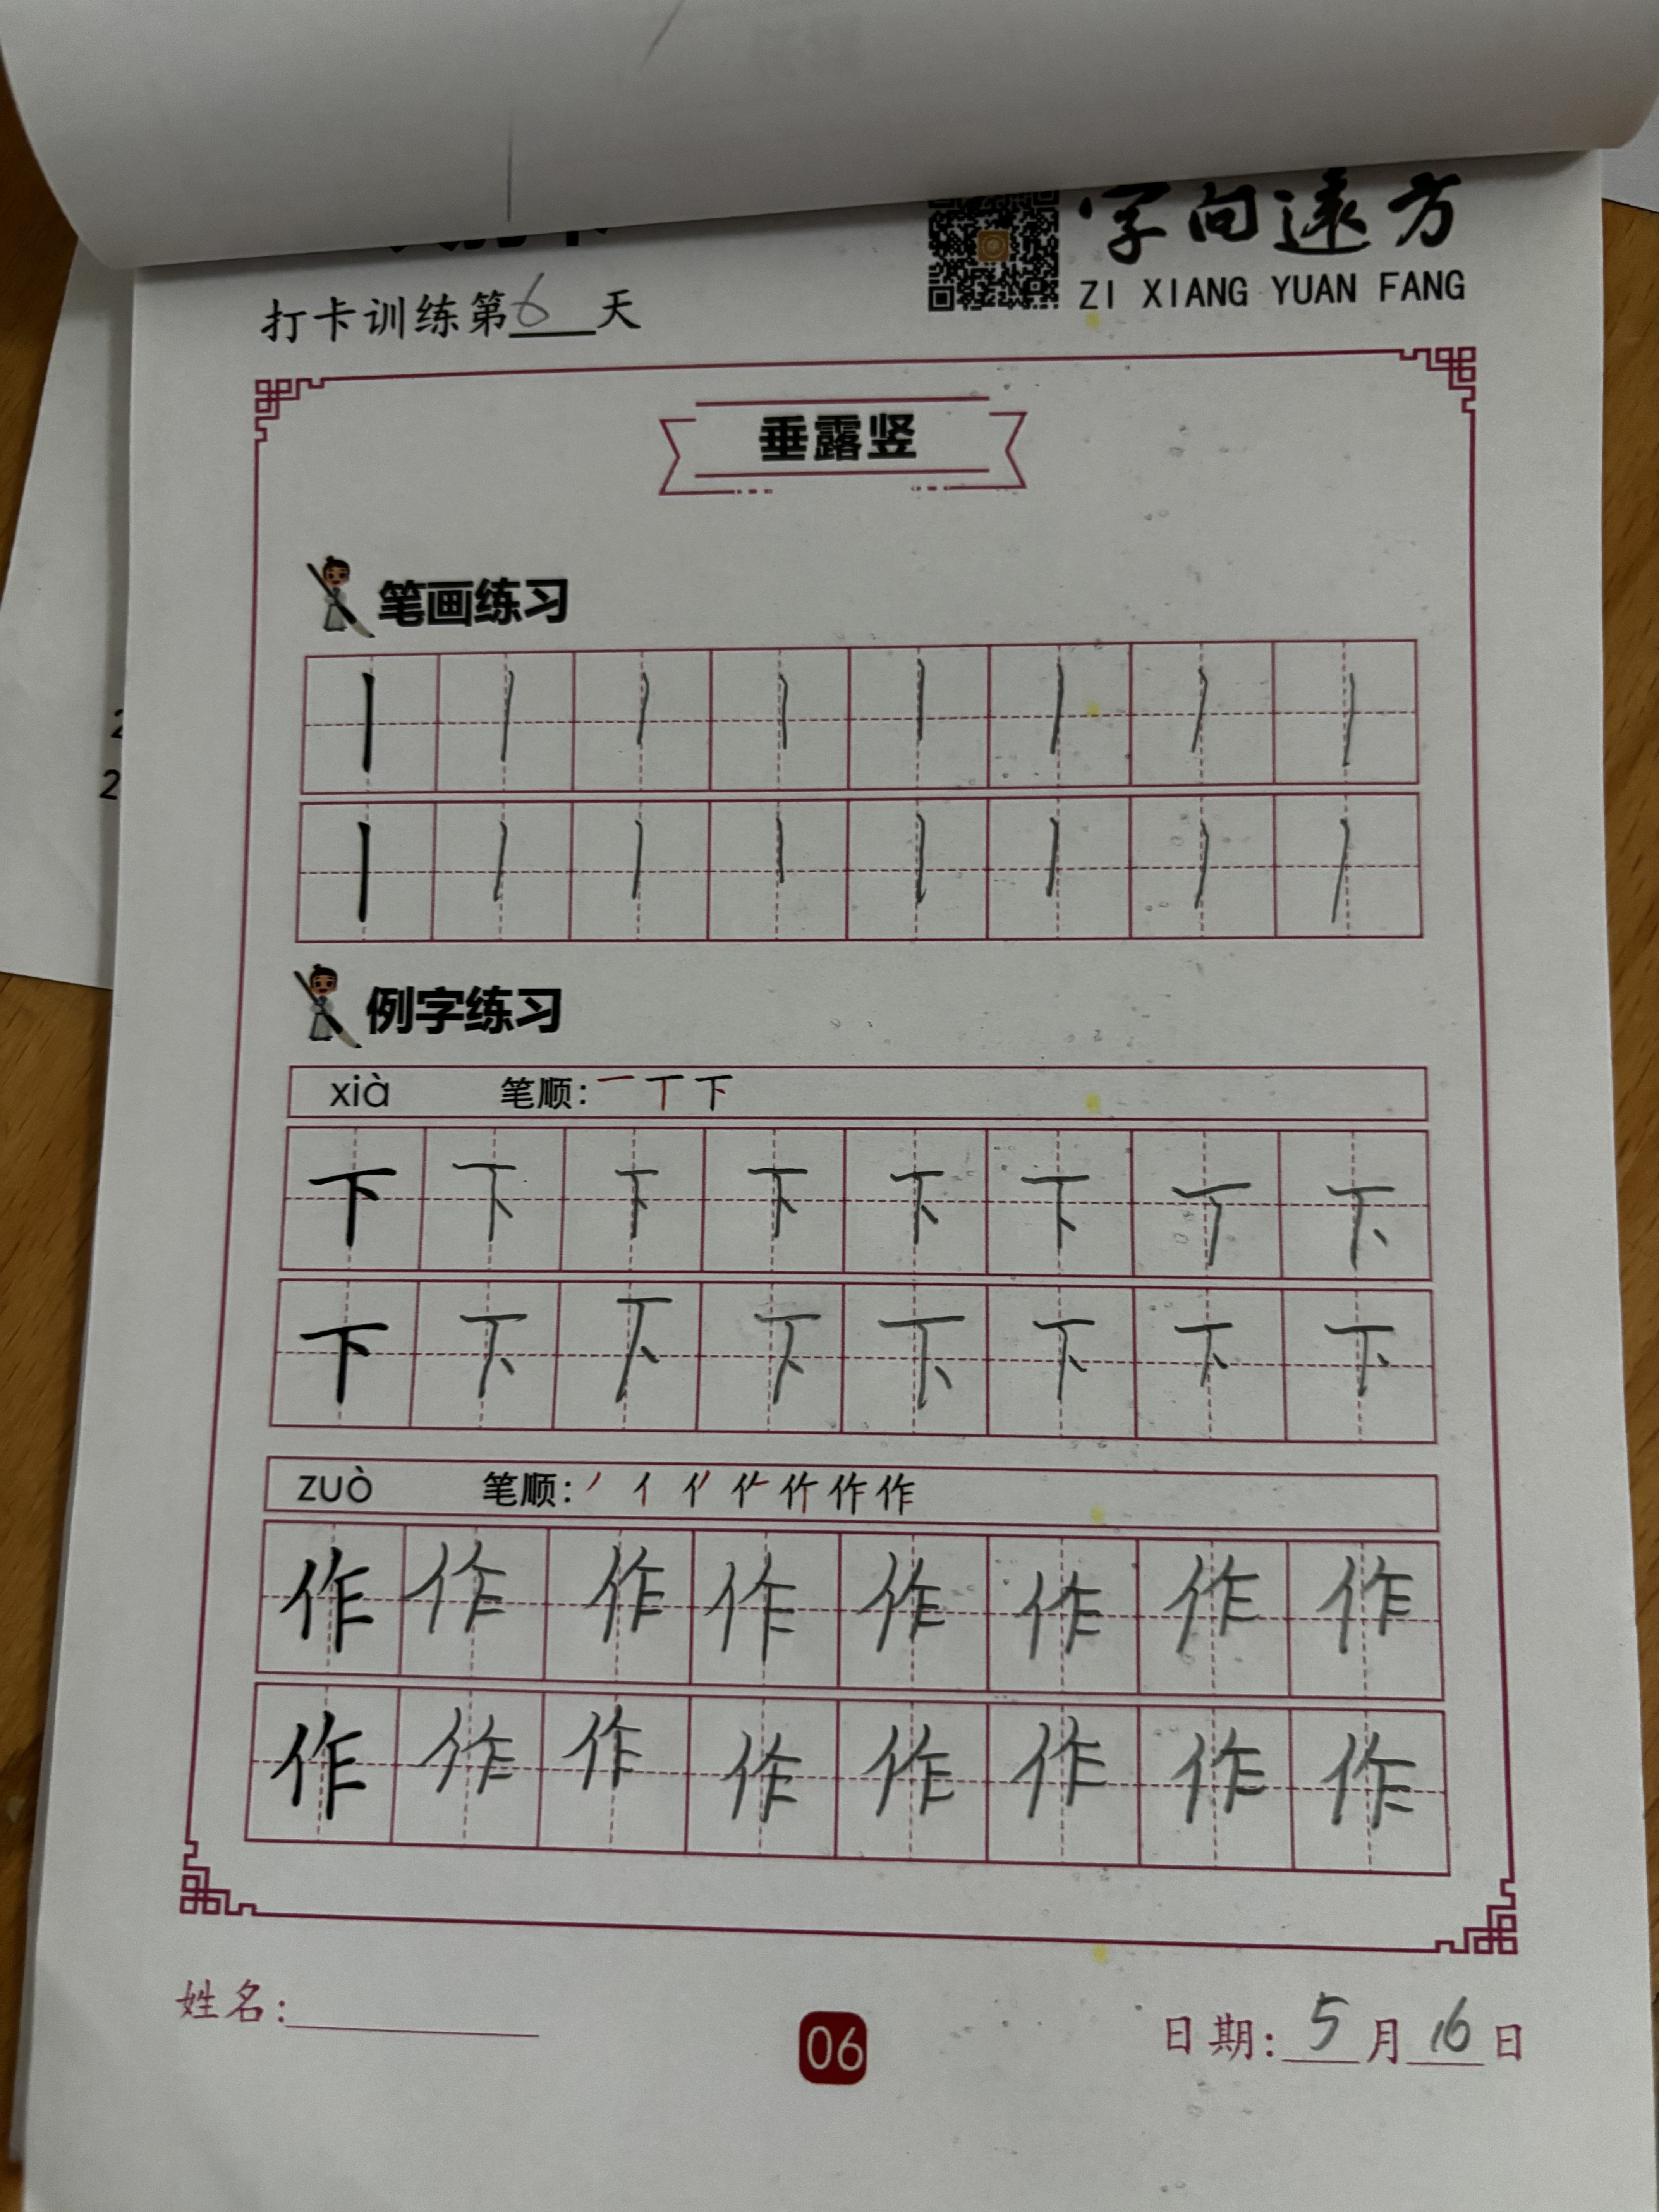 字向遠方
ZI XIANG YUAN FANG
打卡训练第6天
垂露竖
笔画练习
丨丨丨丨丨丨丨丨
丨丨丨丨丨丨丨丨
例字练习
xià 笔顺: 一丅下
下下下下下下下下
下下下下下下下下
zuò 笔顺: 丿亻作作
作作作作作作作作
作作作作作作作作
姓名:
06
日期: 5月16日